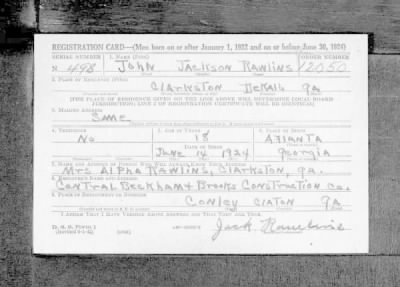 REGISTRATION CARD—(Men born on or after January 1, 1922 and on or before June 30, 1924)
SERIAL NUMBER 1. NAME (Print) ORDER NUMBER
N 498 JOHN JACKSON RAWLINS 12050
2. PLACE OF RESIDENCE (Print)
CLARKSTON DEKALB GA
[THE PLACE OF RESIDENCE GIVEN ON THE LINE ABOVE WILL DETERMINE LOCAL BOARD
JURISDICTION; LINE 2 OF REGISTRATION CERTIFICATE WILL BE IDENTICAL]
3. MAILING ADDRESS
SAME
4. TELEPHONE 5. AGE IN YEARS 6. PLACE OF BIRTH
NO 18 ATLANTA
DATE OF BIRTH
JUNE 14 1924 Georgia
7. NAME AND ADDRESS OF PERSON WHO WILL ALWAYS KNOW YOUR ADDRESS
MRS ALPHA RAWLINS, CLARKSTON, GA.
8. EMPLOYER'S NAME AND ADDRESS
CONTRAL BECKHAM + BROOKS CONSTRUCTION CO.
9. PLACE OF EMPLOYMENT OR BUSINESS
CONLEY CLATON GA
I AFFIRM THAT I HAVE VERIFIED ABOVE ANSWERS AND THAT THEY ARE TRUE.
D. S. S. FORM 1
(Revised 6-9-42) (over)
Jack Rawlins